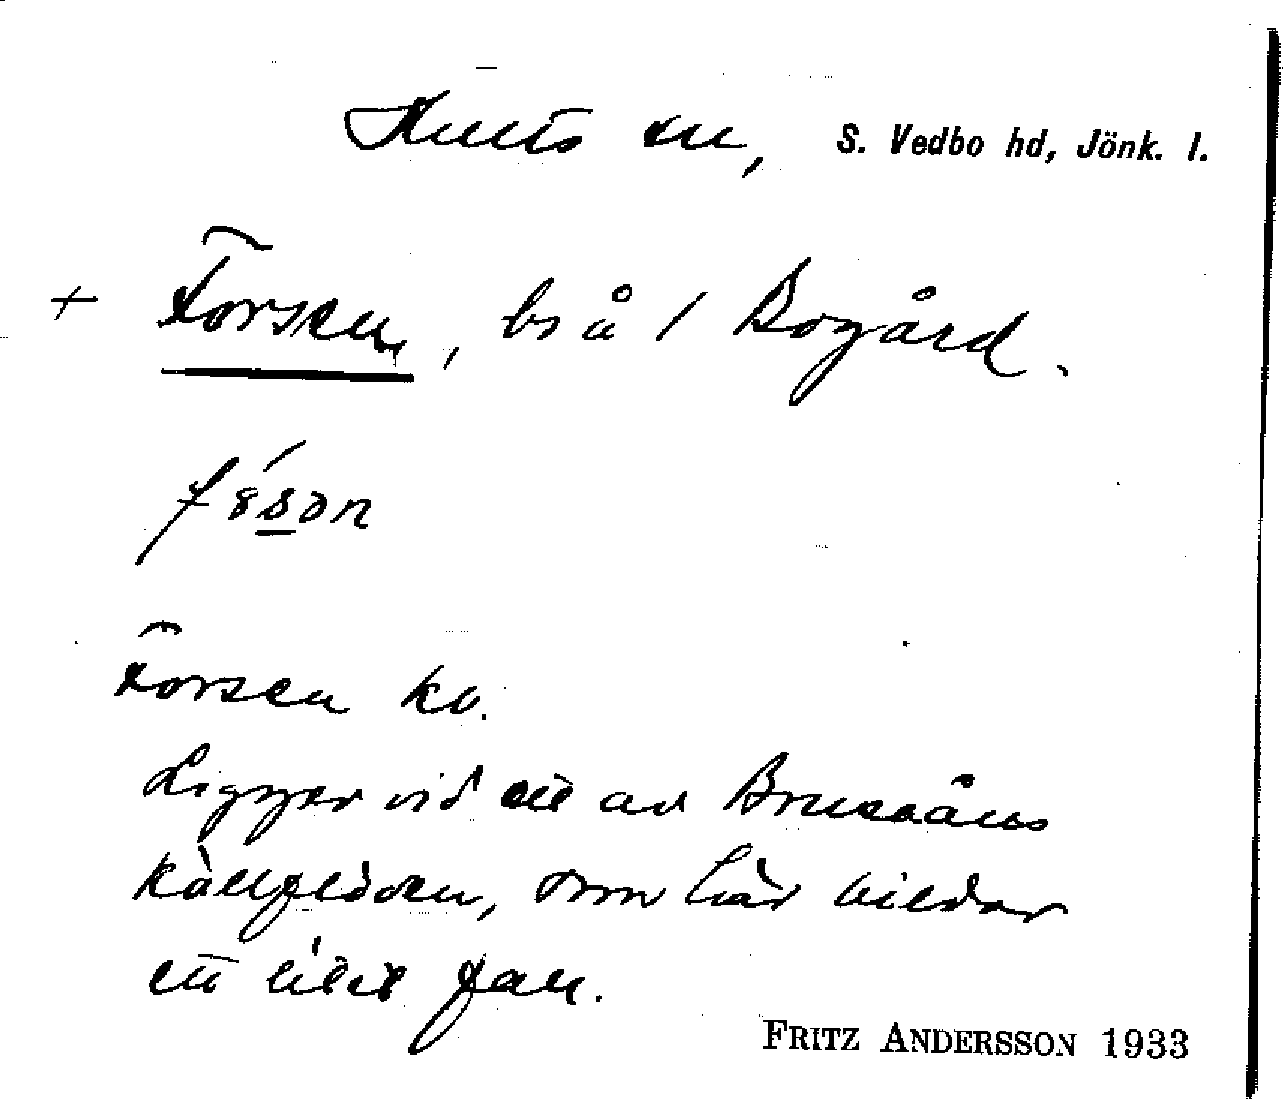 Hults sn, S. Vedbo hd, Jönk. l.
+ Forsen, bs å 1 Bogård.
fɞ́sən
Forsen ko.
Ligger vid ett av Brusaåns
källflöden, som här bildar
ett litet fall.
FRITZ ANDERSSON 1933